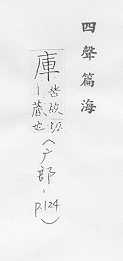 四聲篇海
庫 苦故切
—藏也
(广部,
p.124)